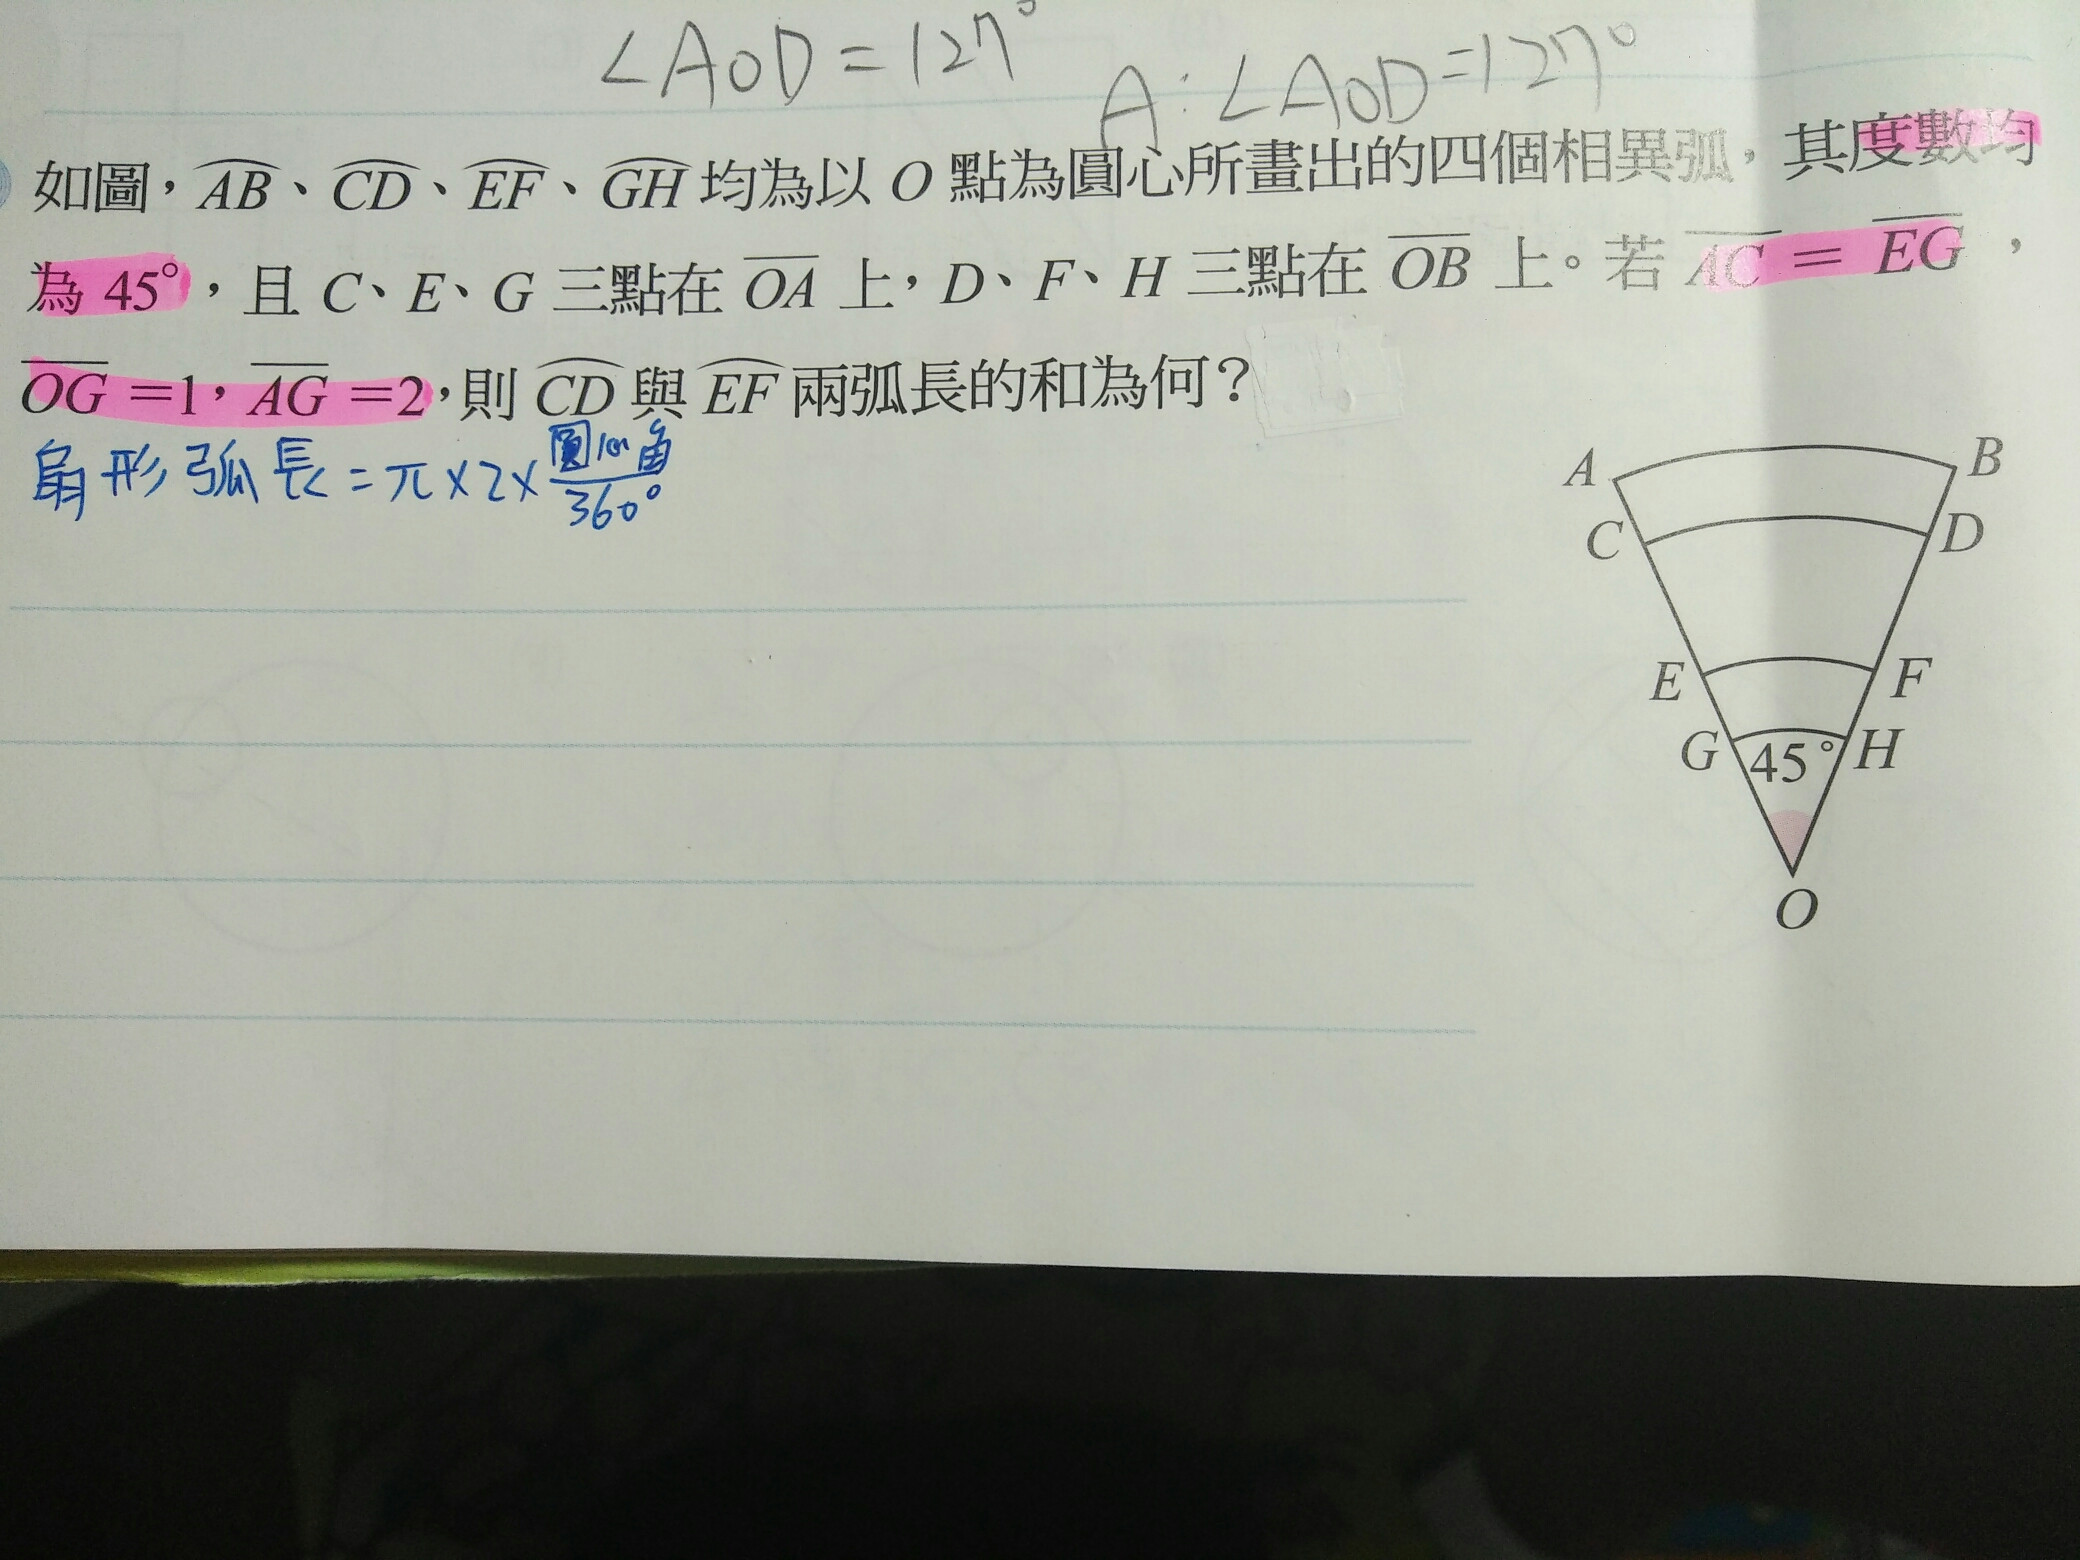 ∠AOD=127°
A:∠AOD=127°
如圖，AB、CD、EF、GH 均為以 O 點為圓心所畫出的四個相異弧，其度數均
為 45°，且 C、E、G 三點在 OA 上，D、F、H 三點在 OB 上。若 AC = EG，
OG =1，AG =2，則 CD 與 EF 兩弧長的和為何？
扇形弧長=π×2×圓心角/360°
A
B
C
D
E
F
G
45°
H
O